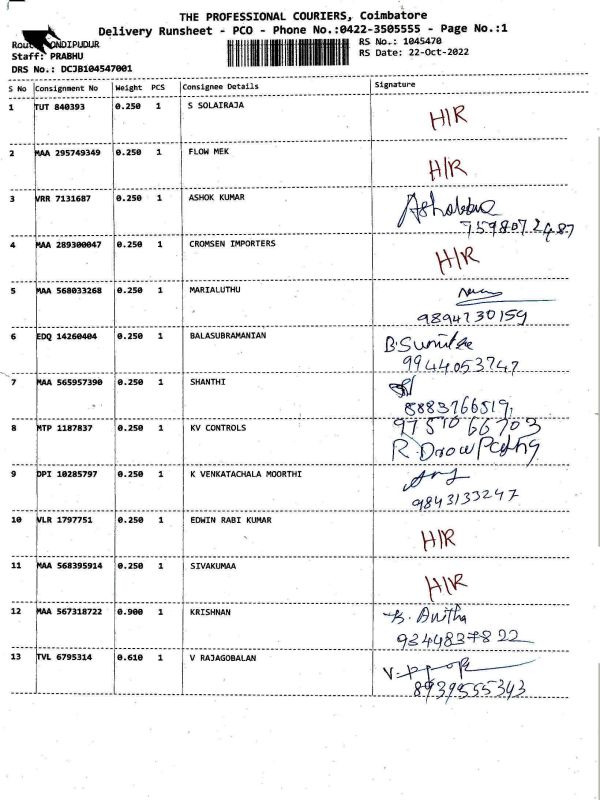 THE PROFESSIONAL COURIERS, Coimbatore
Delivery Runsheet - PCO - Phone No.:0422-3505555 - Page No.:1
ONDIPUDUR
RS No.: 1045470
Staff: PRABHU
RS Date: 22-Oct-2022
DRS No.: DCJB104547001
S No Consignment No Weight PCS Consignee Details Signature
1 TUT 840393 0.250 1 S SOLAIRAJA H/R
2 MAA 295749349 0.250 1 FLOW MEK H/R
3 VRR 7131687 0.250 1 ASHOK KUMAR
7598072487
4 MAA 289300047 0.250 1 CROMSEN IMPORTERS H/R
5 MAA 568033268 0.250 1 MARIALUTHU
9894730159
6 EDQ 14260404 0.250 1 BALASUBRAMANIAN
9944053747
7 MAA 565957390 0.250 1 SHANTHI
8883766519
8 MTP 1187837 0.250 1 KV CONTROLS 9751066703
R.
9 DPI 10285797 0.250 1 K VENKATACHALA MOORTHI
9843133247
10 VLR 1797751 0.250 1 EDWIN RABI KUMAR H/R
11 MAA 568395914 0.250 1 SIVAKUMAA H/R
12 MAA 567318722 0.900 1 KRISHNAN Anitha
9344837822
13 TVL 6795314 0.610 1 V RAJAGOBALAN
8939555343